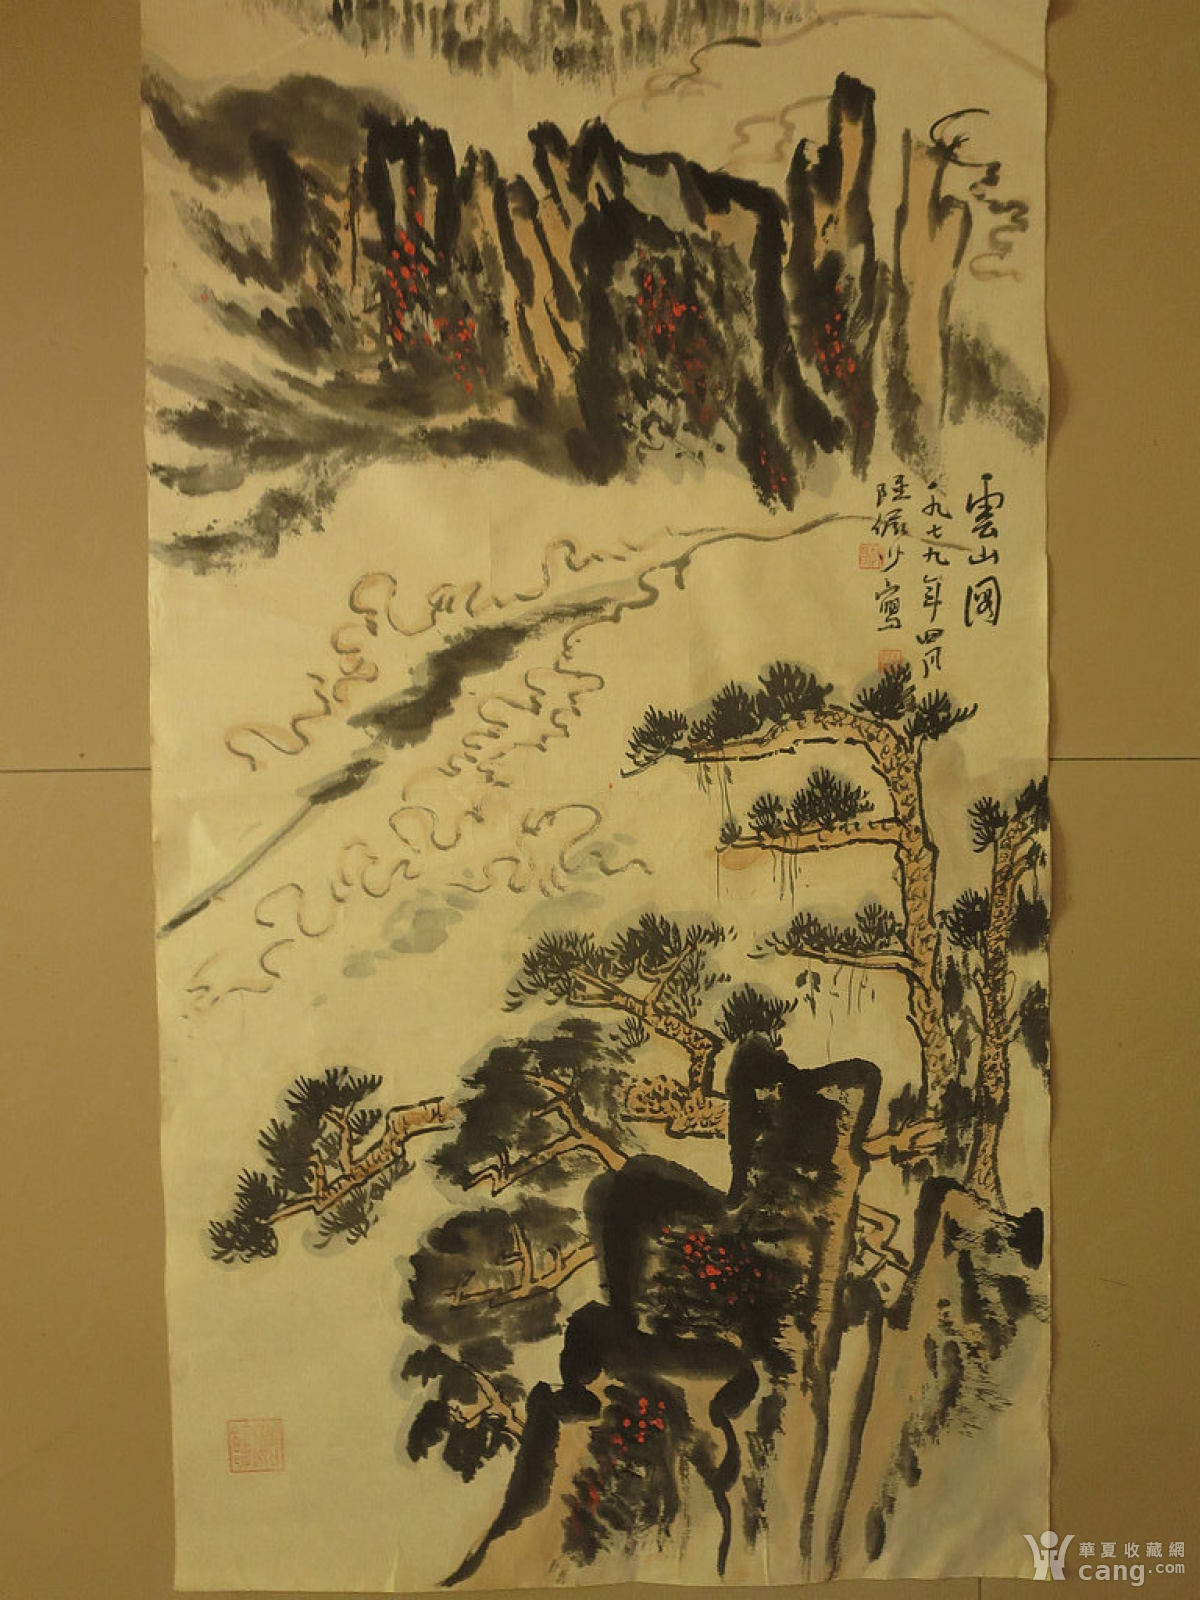 雲山图
一九七九年四月
陆俨少寫
華夏收藏網
cang.com